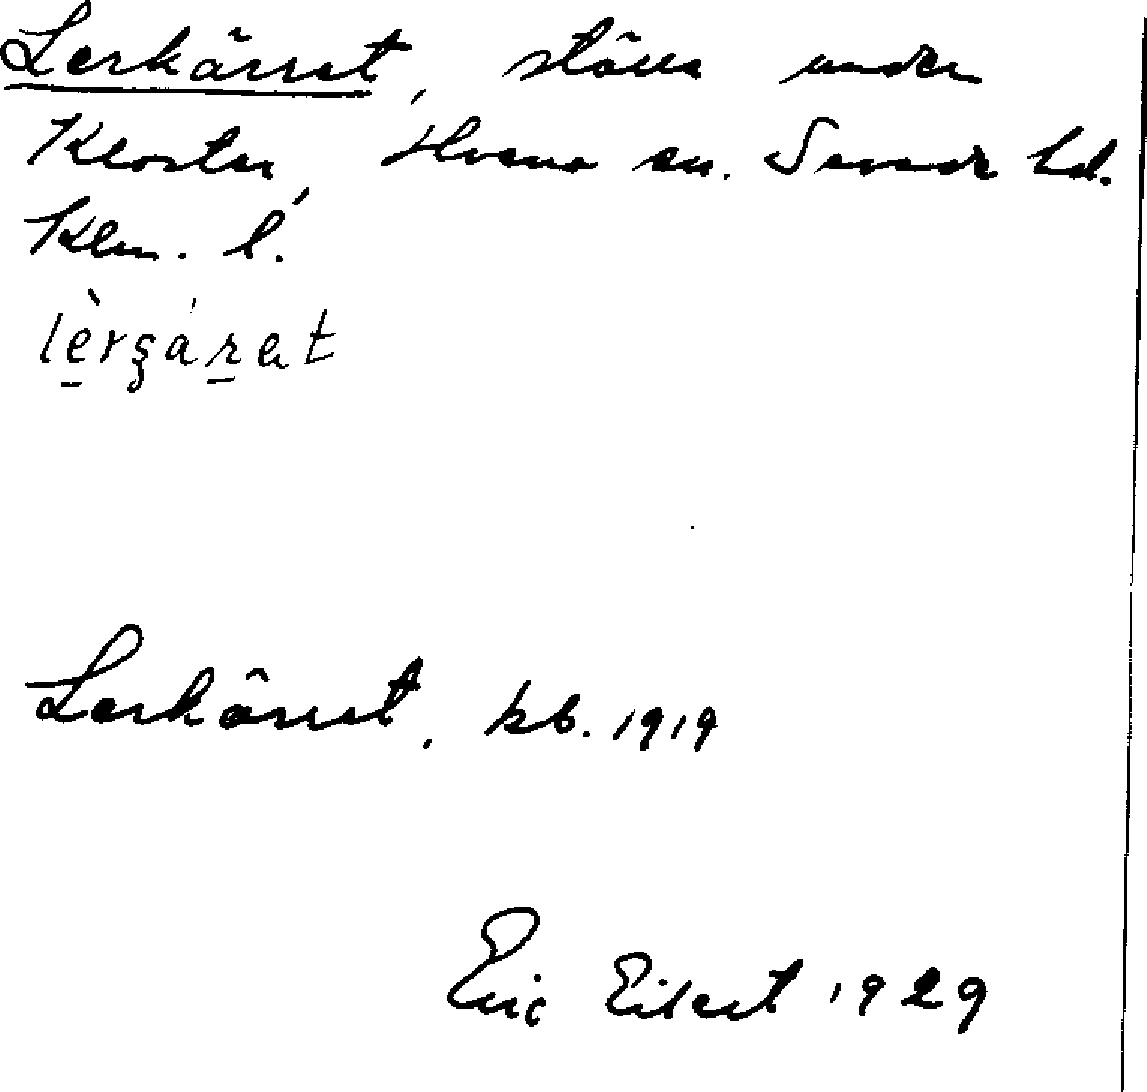 Lerkärret, ställe under
Kloster, Hvena sn. Sevede hd.
Klm. l.
lèrʂáret
Lerkärret, kb. 1919
Eric Eilert 1929